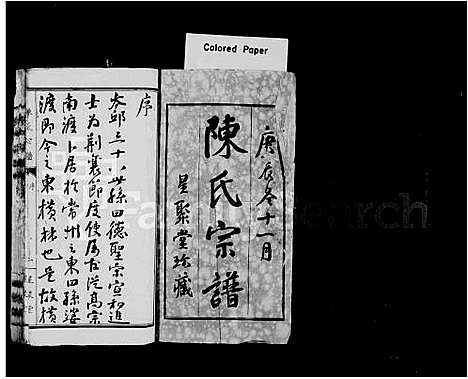 Colored Paper
庚辰冬十一月
陳氏宗譜
星聚堂珍藏
序
太邱三十八世孫曰德聖宗宣和進
士为荆襄節度使扈從高宗
南渡卜居於常州之東曰孫婆
渡即今之東橫林也是故橫
FamilySearch